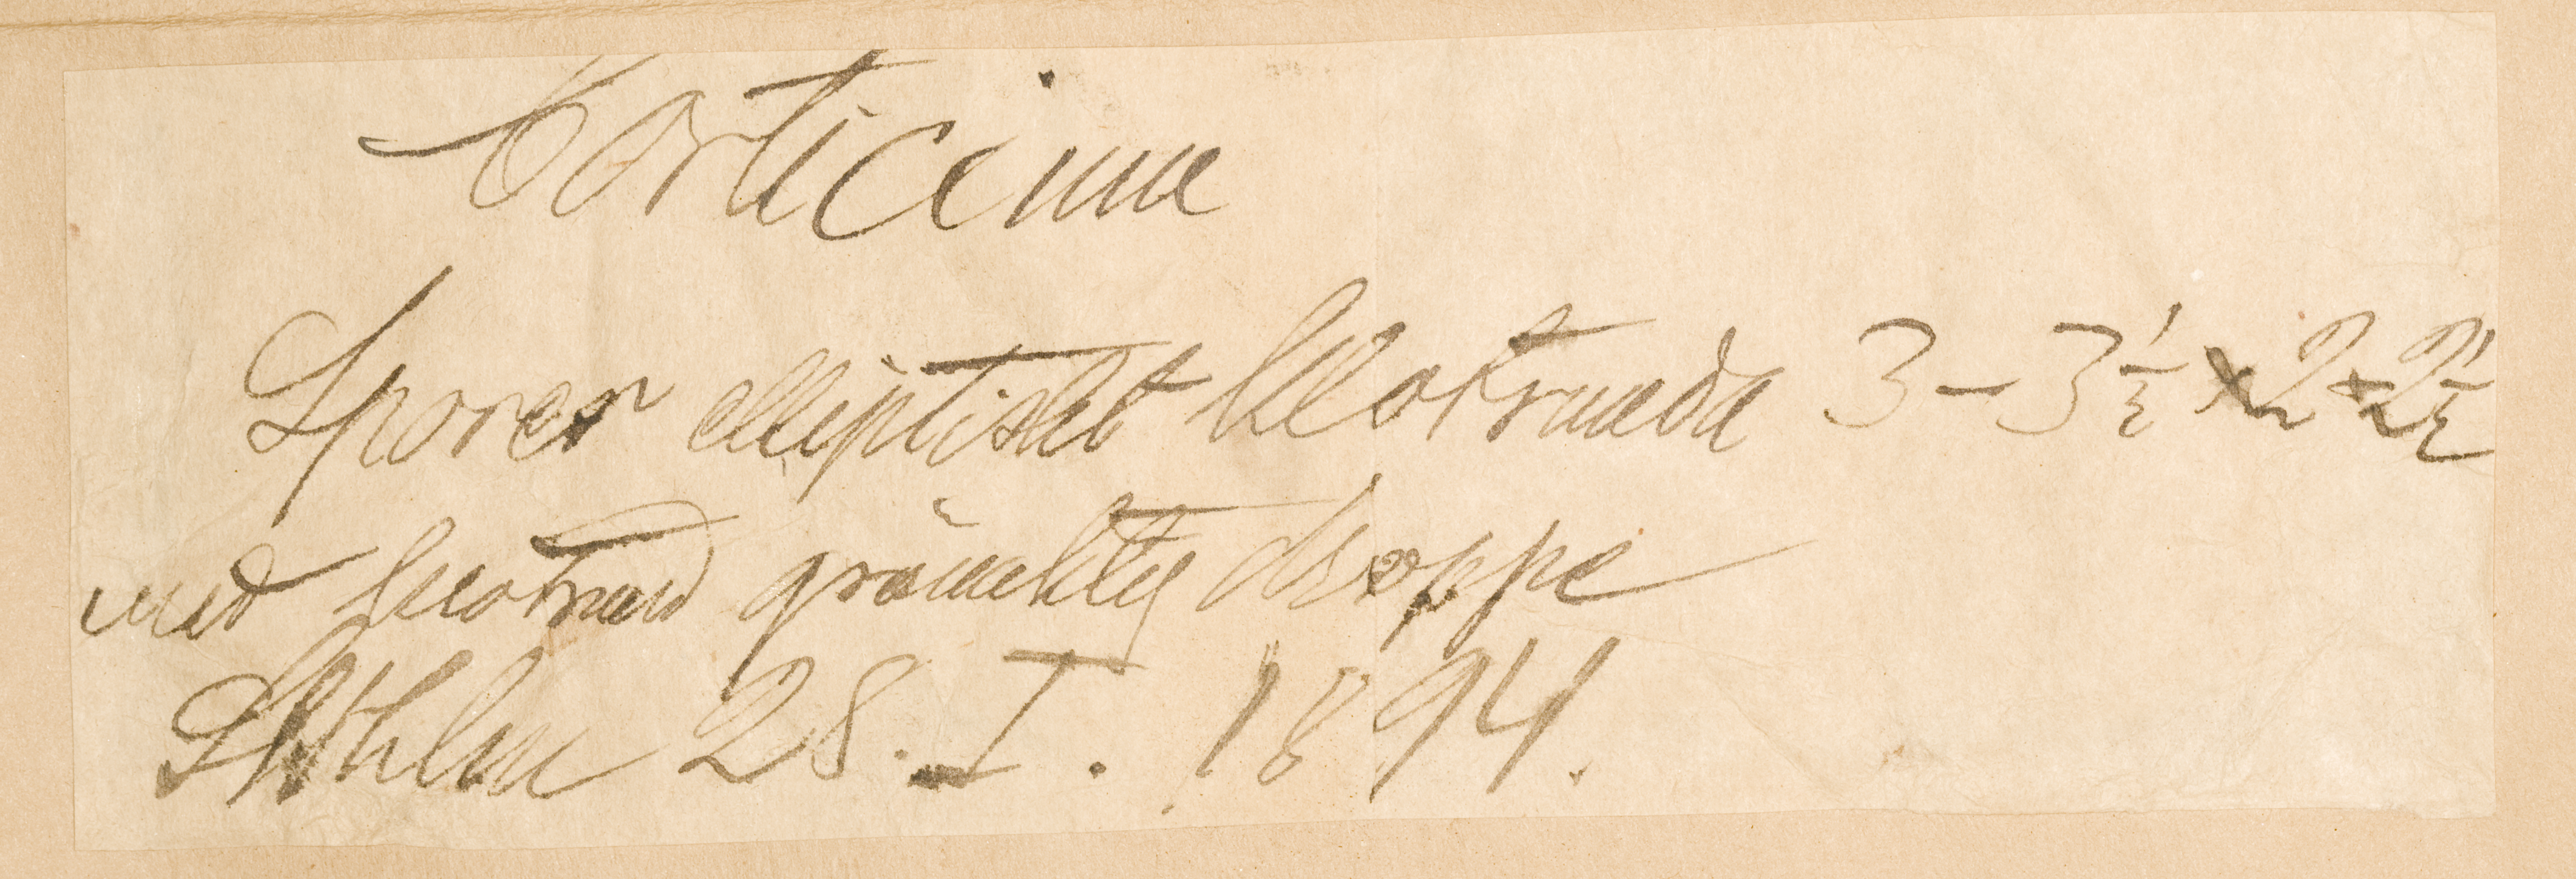 Corticium
Sporer elliptiskt klotrunda 3–3½ × 2–2½
med klotrund grönaktig droppe
Sthlm 28. I. 1894.